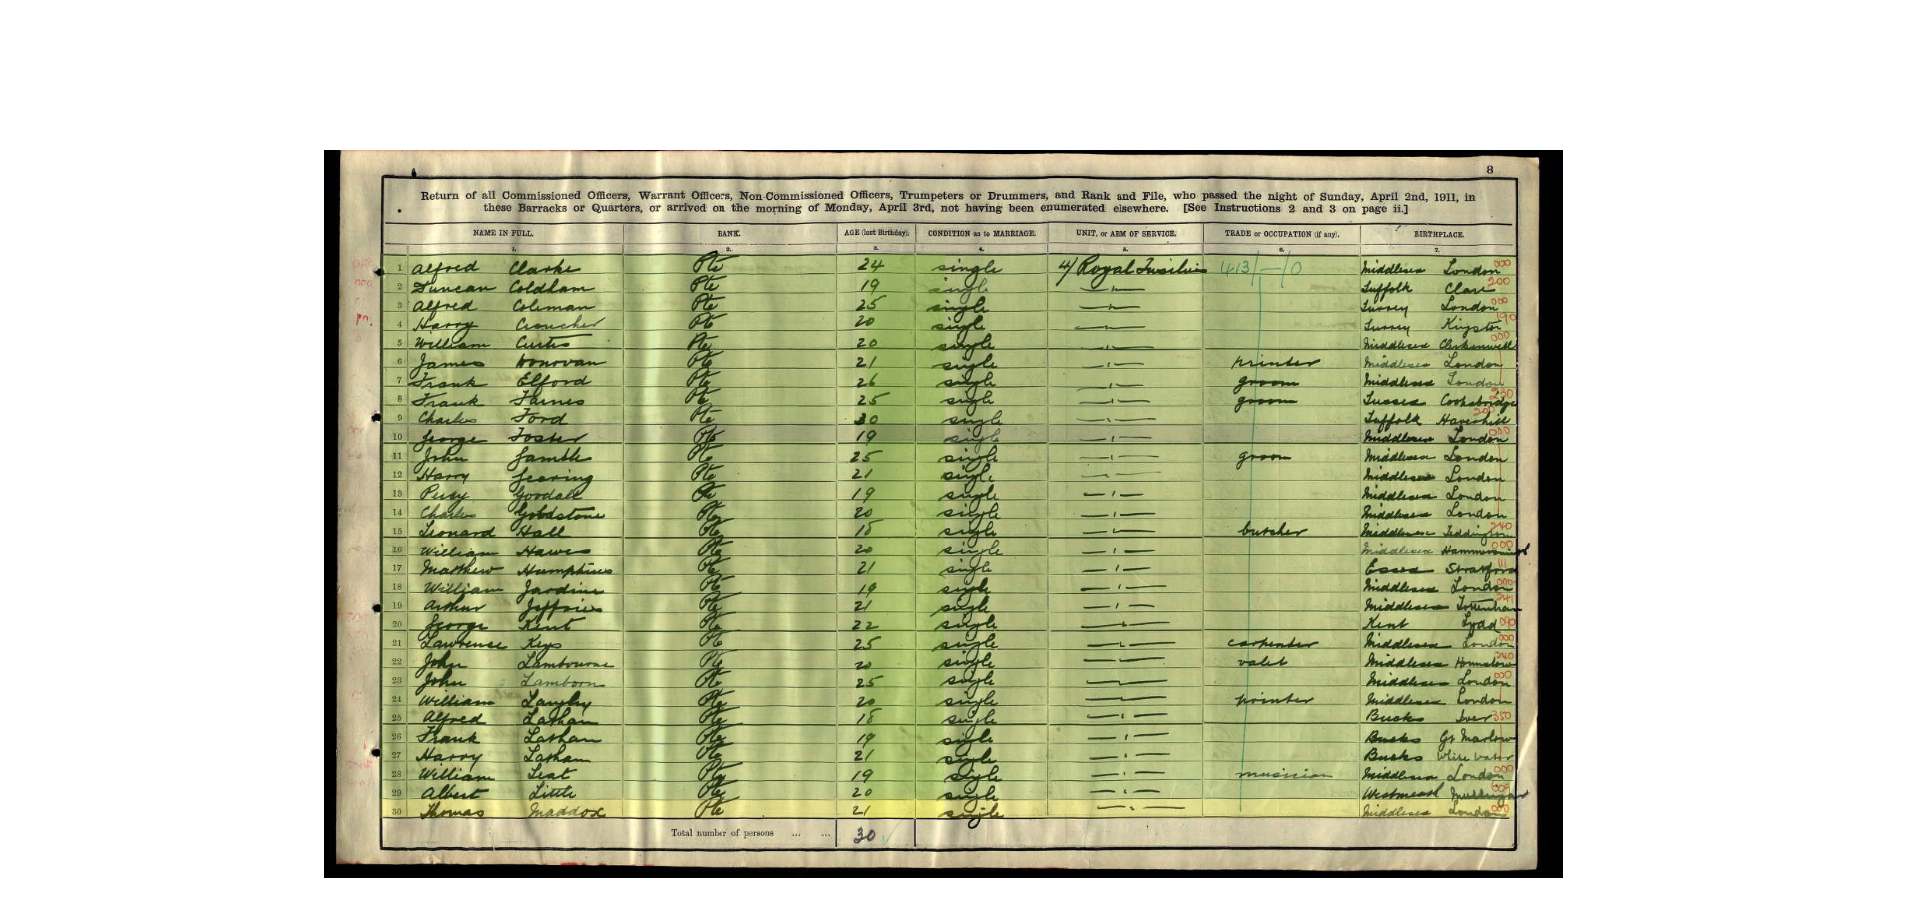 8
Return of all Commissioned Officers, Warrant Officers, Non-Commissioned Officers, Trumpeters or Drummers, and Rank and File, who passed the night of Sunday, April 2nd, 1911, in
these Barracks or Quarters, or arrived on the morning of Monday, April 3rd, not having been enumerated elsewhere. [See Instructions 2 and 3 on page ii.]
NAME IN FULL. RANK. AGE (last Birthday). CONDITION as to MARRIAGE. UNIT, or ARM OF SERVICE. TRADE or OCCUPATION (if any). BIRTHPLACE.
1. 2. 3. 4. 5. 6. 7.
1 Alfred Clarke Pte 24 single 4/Royal Fusiliers 413/—/0 Middlesex London 000
2 Duncan Coldham Pte 19 single —"— Suffolk Clare 200
3 Alfred Coleman Pte 25 single —"— Surrey London 000
4 Harry Croucher Pte 20 single —"— Surrey Kingston 190
5 William Curtis Pte 20 single —"— Middlesex Clerkenwell 000
6 James Donovan Pte 21 single —"— printer Middlesex London
7 Frank Elford Pte 26 single —"— groom Middlesex London
8 Frank Fames Pte 25 single —"— groom Sussex Cooksbridge 230
9 Charles Ford Pte 30 single —"— Suffolk Haverhill 200
10 George Foster Pte 19 single —"— Middlesex London 000
11 John Gamble Pte 25 single —"— groom Middlesex London
12 Harry Gearing Pte 21 single —"— Middlesex London
13 Percy Goodall Pte 19 single —"— Middlesex London
14 Charles Goldstone Pte 20 single —"— Middlesex London
15 Leonard Hall Pte 18 single —"— butcher Middlesex Teddington 240
16 William Hawes Pte 20 single —"— Middlesex Hammersmith 000
17 Mathew Humphries Pte 21 single —"— Essex Stratford 111
18 William Jardine Pte 19 single —"— Middlesex London 000
19 Arthur Jeffries Pte 21 single —"— Middlesex Tottenham 241
20 George Kent Pte 22 single —"— Kent Lydd
21 Lawrence Keys Pte 25 single —"— carpenter Middlesex London 000
22 John Lambourne Pte 20 single —"— valet Middlesex Hounslow 240
23 John Lamborn Pte 25 single —"— Middlesex London 000
24 William Pte 20 single —"— printer Middlesex London
25 Alfred Latham Pte 18 single —"— Bucks Iver 350
26 Frank Latham Pte 19 single —"— Bucks Gt Marlow
27 Harry Latham Pte 21 single —"— Bucks White Water
28 William Leat Pte 19 single —"— musician Middlesex London 000
29 Albert Little Pte 20 single —"— Westmeath Mullingar
30 Thomas Maddox Pte 21 single —"— Middlesex London 000
Total number of persons ... ... 30